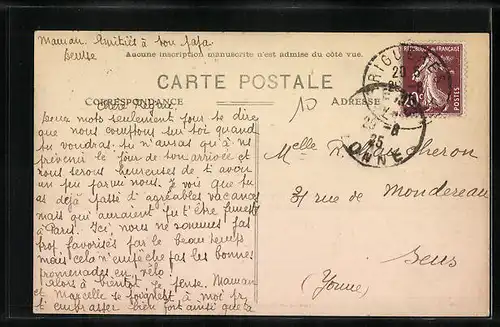 Maman. Amitiés à ton papa
Aucune inscription manuscrite n'est admise du côté vue.
CARTE POSTALE
CORRESPONDANCE
ADRESSE
10
RÉPUBLIQUE FRANÇAISE
POSTES
Deux mots seulement pour te dire
que nous comptons sur toi quand
tu voudras. Tu n'auras qu'à ns
prévenir le jour de ton arrivée et
nous serons heureuses de t'avoir
un peu parmi nous. Je vois que tu
as déjà passé d'agréables vacances
mais qui auraient pu t'être
à Paris. Ici, nous ne sommes pas
trop favorisés par le beau temps
mais cela n'empêche pas les bonnes
promenades en vélo.
Alors à bientôt je pense. Maman
et Marcelle se joignent à moi pr
t'embrasser bien fort ainsi que ta
Melle R.
31 rue de Mondereau
Sens
(Yonne)